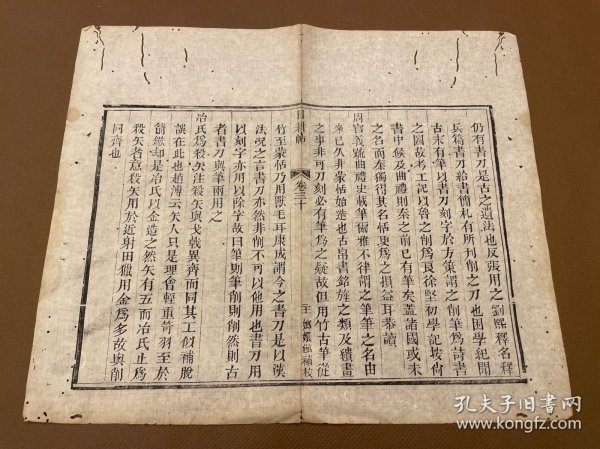 仍有書刀是古之遺法也反張用之劉熙釋名釋
兵篇書刀給書簡札有所刊削之刀也困學紀聞
古未有筆以書刀刻字於方策謂之削筆為詩書
之國故考工記以魯之削為良徐堅初學記按尚
書中候及曲禮則秦之前已有筆矣蓋諸國或未
之名而秦獨得其名恬更為之損益耳恭讀
周官義疏曲禮史載筆爾雅不律謂之筆筆之名由
來已久非蒙恬始造也古帛書銘旌之類及績畫
之事非可刀刻必有筆為之疑故但用竹古筆從
目耕帖
卷三十
竹至蒙恬乃用獸毛耳康成謂今之書刀是以漢
法況之古書刀亦然非削不可以他用也書刀用
以刻字亦用以除字故曰筆則筆削則削然則古
者書刀與筆兩用之
冶氏為殺矢注殺矢與戈戟異齊而同其工似補脫
誤在此也趙溥云矢人只是理會輕重笴羽至於
箭鏃却是冶氏以金造之然矢有五而冶氏止為
殺矢者意殺矢用於近射田獵用金為多故與削
同齊也
孔夫子旧书网
www.kongfz.com